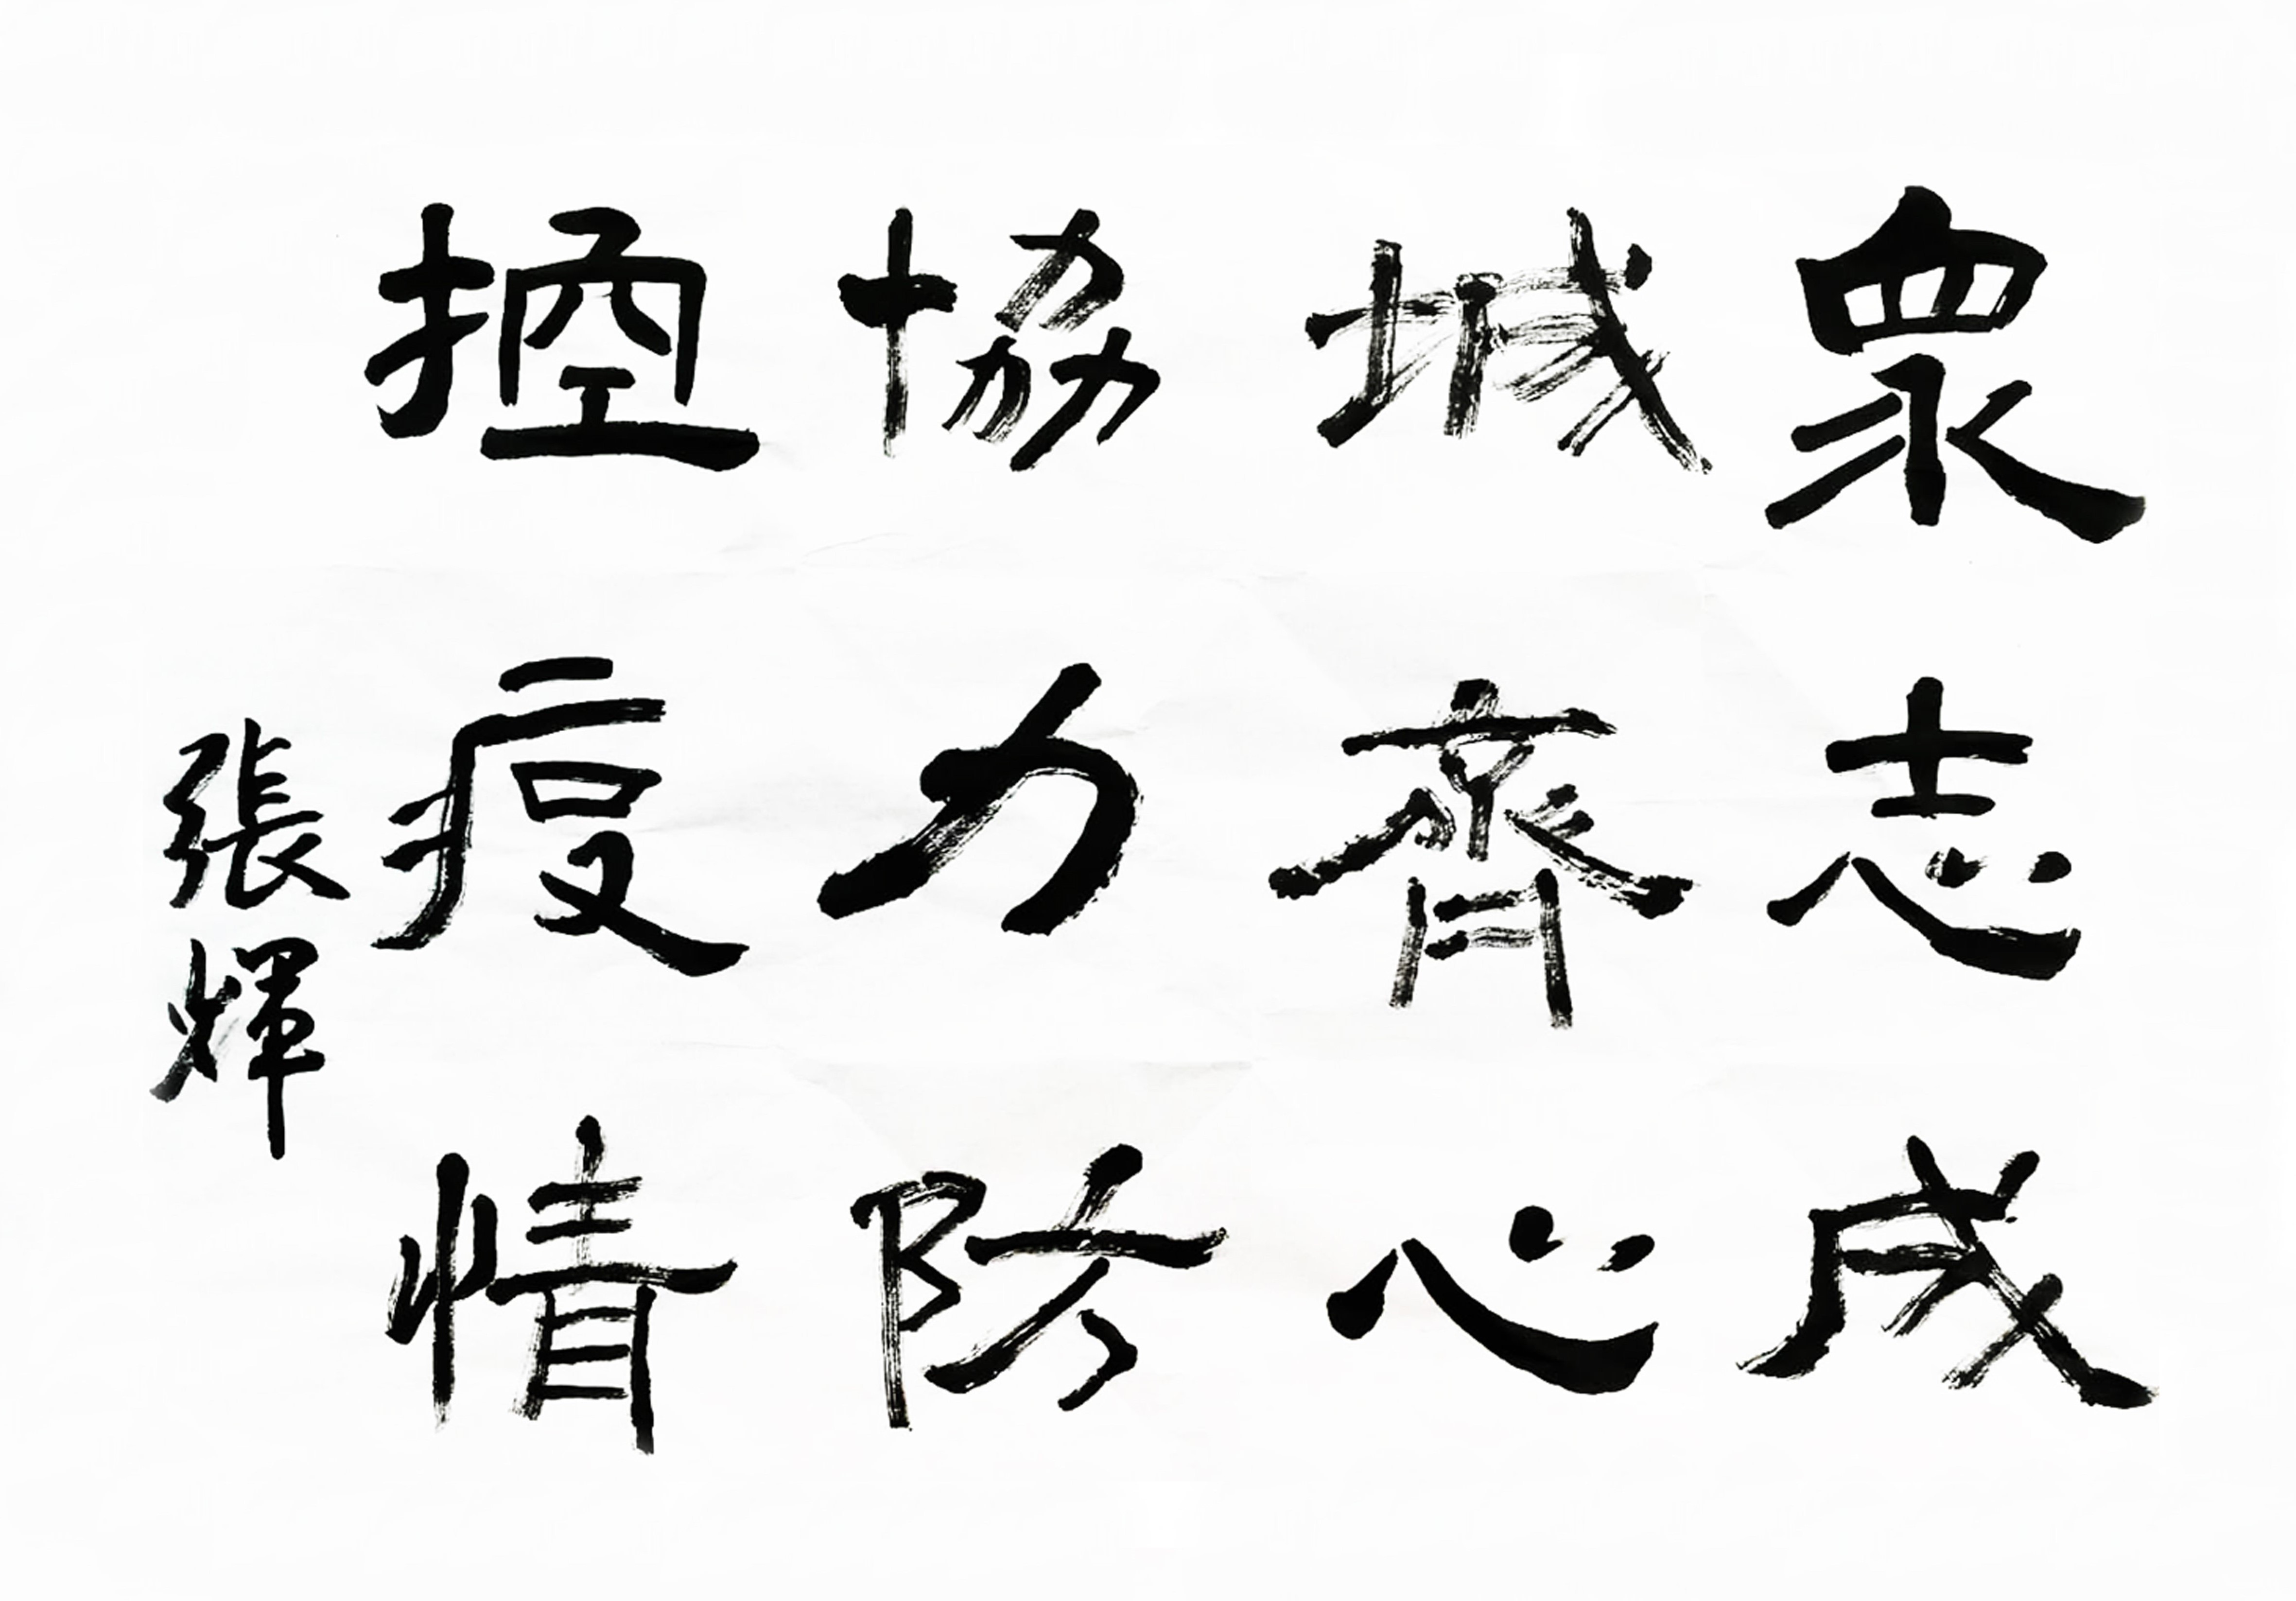 衆志成
城齊心
協力防
控疫情
張輝